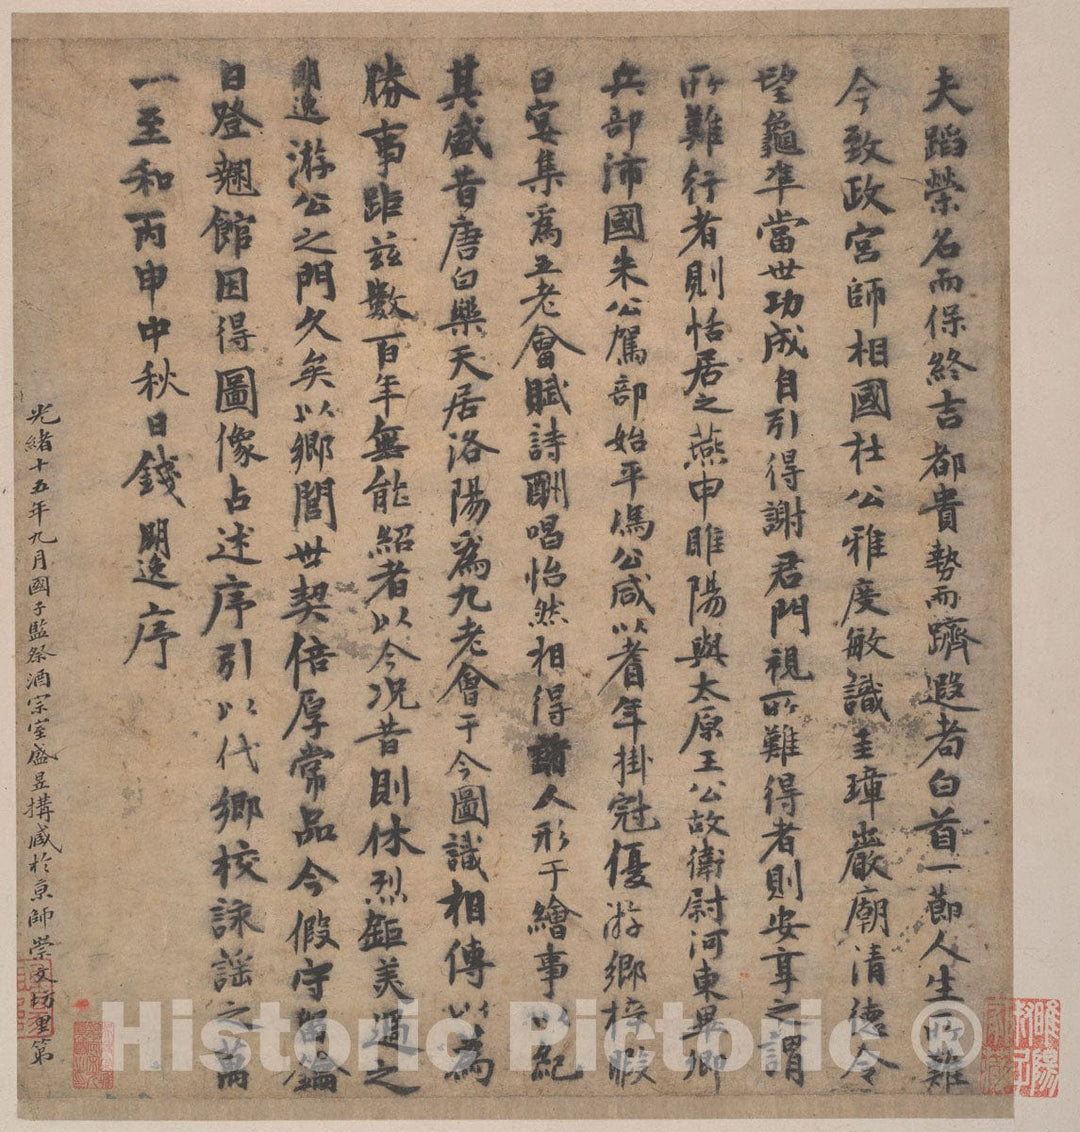 夫蹈榮名而保終吉都貴勢而躋遐耇白首一節人生所難
今致政宮師相國杜公雅度敏識圭璋巖廟清德令
望龜準當世功成自引得謝君門視所難得者則安享之謂
所難行者則恬居之燕申睢陽與太原王公故衛尉河東畢卿
兵部沛國朱公駕部始平馮公咸以耆年挂冠優游鄉梓暇
日宴集爲五老會賦詩酬唱怡然相得誚人形于繪事以紀
其盛昔唐白樂天居洛陽爲九老會于今圖識相傳以爲
勝事距茲數百年無能紹者以今況昔則休烈鉅美過之
明逸游公之門久矣以鄉閭世契倍厚常品今假守留鑰
日登翹館因得圖像占述序引以代鄉校詠謠之萬
一至和丙申中秋日錢明逸序
光緒十五年九月國子監祭酒宗室盛昱搆藏於京師崇文坊里第
睢陽
Historic Pictoric ®